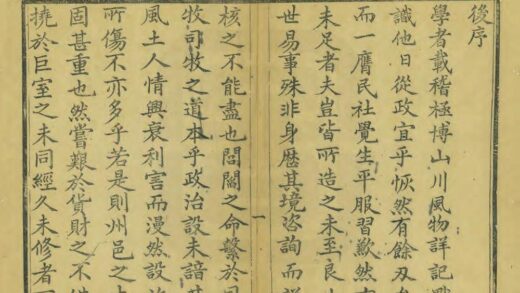 後序
學者載稽極博山川風物詳記
識他日從政宜乎恢然有餘刃
而一膺民社覺生平服習歉然
未足者夫豈皆所造之未至良
世易事殊非身歷其境咨詢而
一
核之不能盡也閭閻之命繫於
牧司牧之道本乎政治設未諳
風土人情興衰利害而漫然設
所傷不亦多乎若是則州邑之
固甚重也然嘗艱於貨財之不
撓於巨室之未同經久未修者